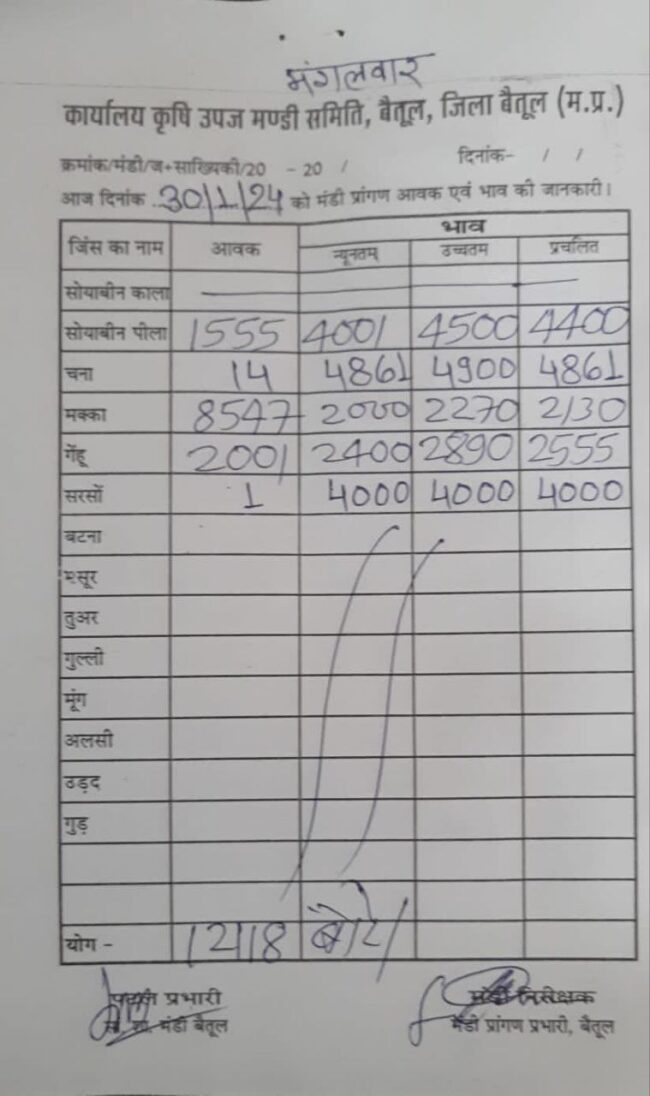 मंगलवार
कार्यालय कृषि उपज मण्डी समिति, बैतूल, जिला बैतूल (म.प्र.)
क्रमांक/मंडी/ज+साख्यिकी/20 - 20 / दिनांक- / /
आज दिनांक ..30/1/24 को मंडी प्रांगण आवक एवं भाव की जानकारी।
जिंस का नाम आवक भाव
न्यूनतम् उच्चतम प्रचलित
सोयाबीन काला — — — —
सोयाबीन पीला 1555 4001 4500 4400
चना 14 4861 4900 4861
मक्का 8547 2000 2270 2130
गेंहू 2001 2400 2890 2555
सरसों 1 4000 4000 4000
बटना
मसूर
तुअर
गुल्ली
मूंग
अलसी
उड़द
गुड़
योग - 12118 बोरे
प्रभारी मंडी निरीक्षक
मंडी बैतूल मंडी प्रांगण प्रभारी, बैतूल